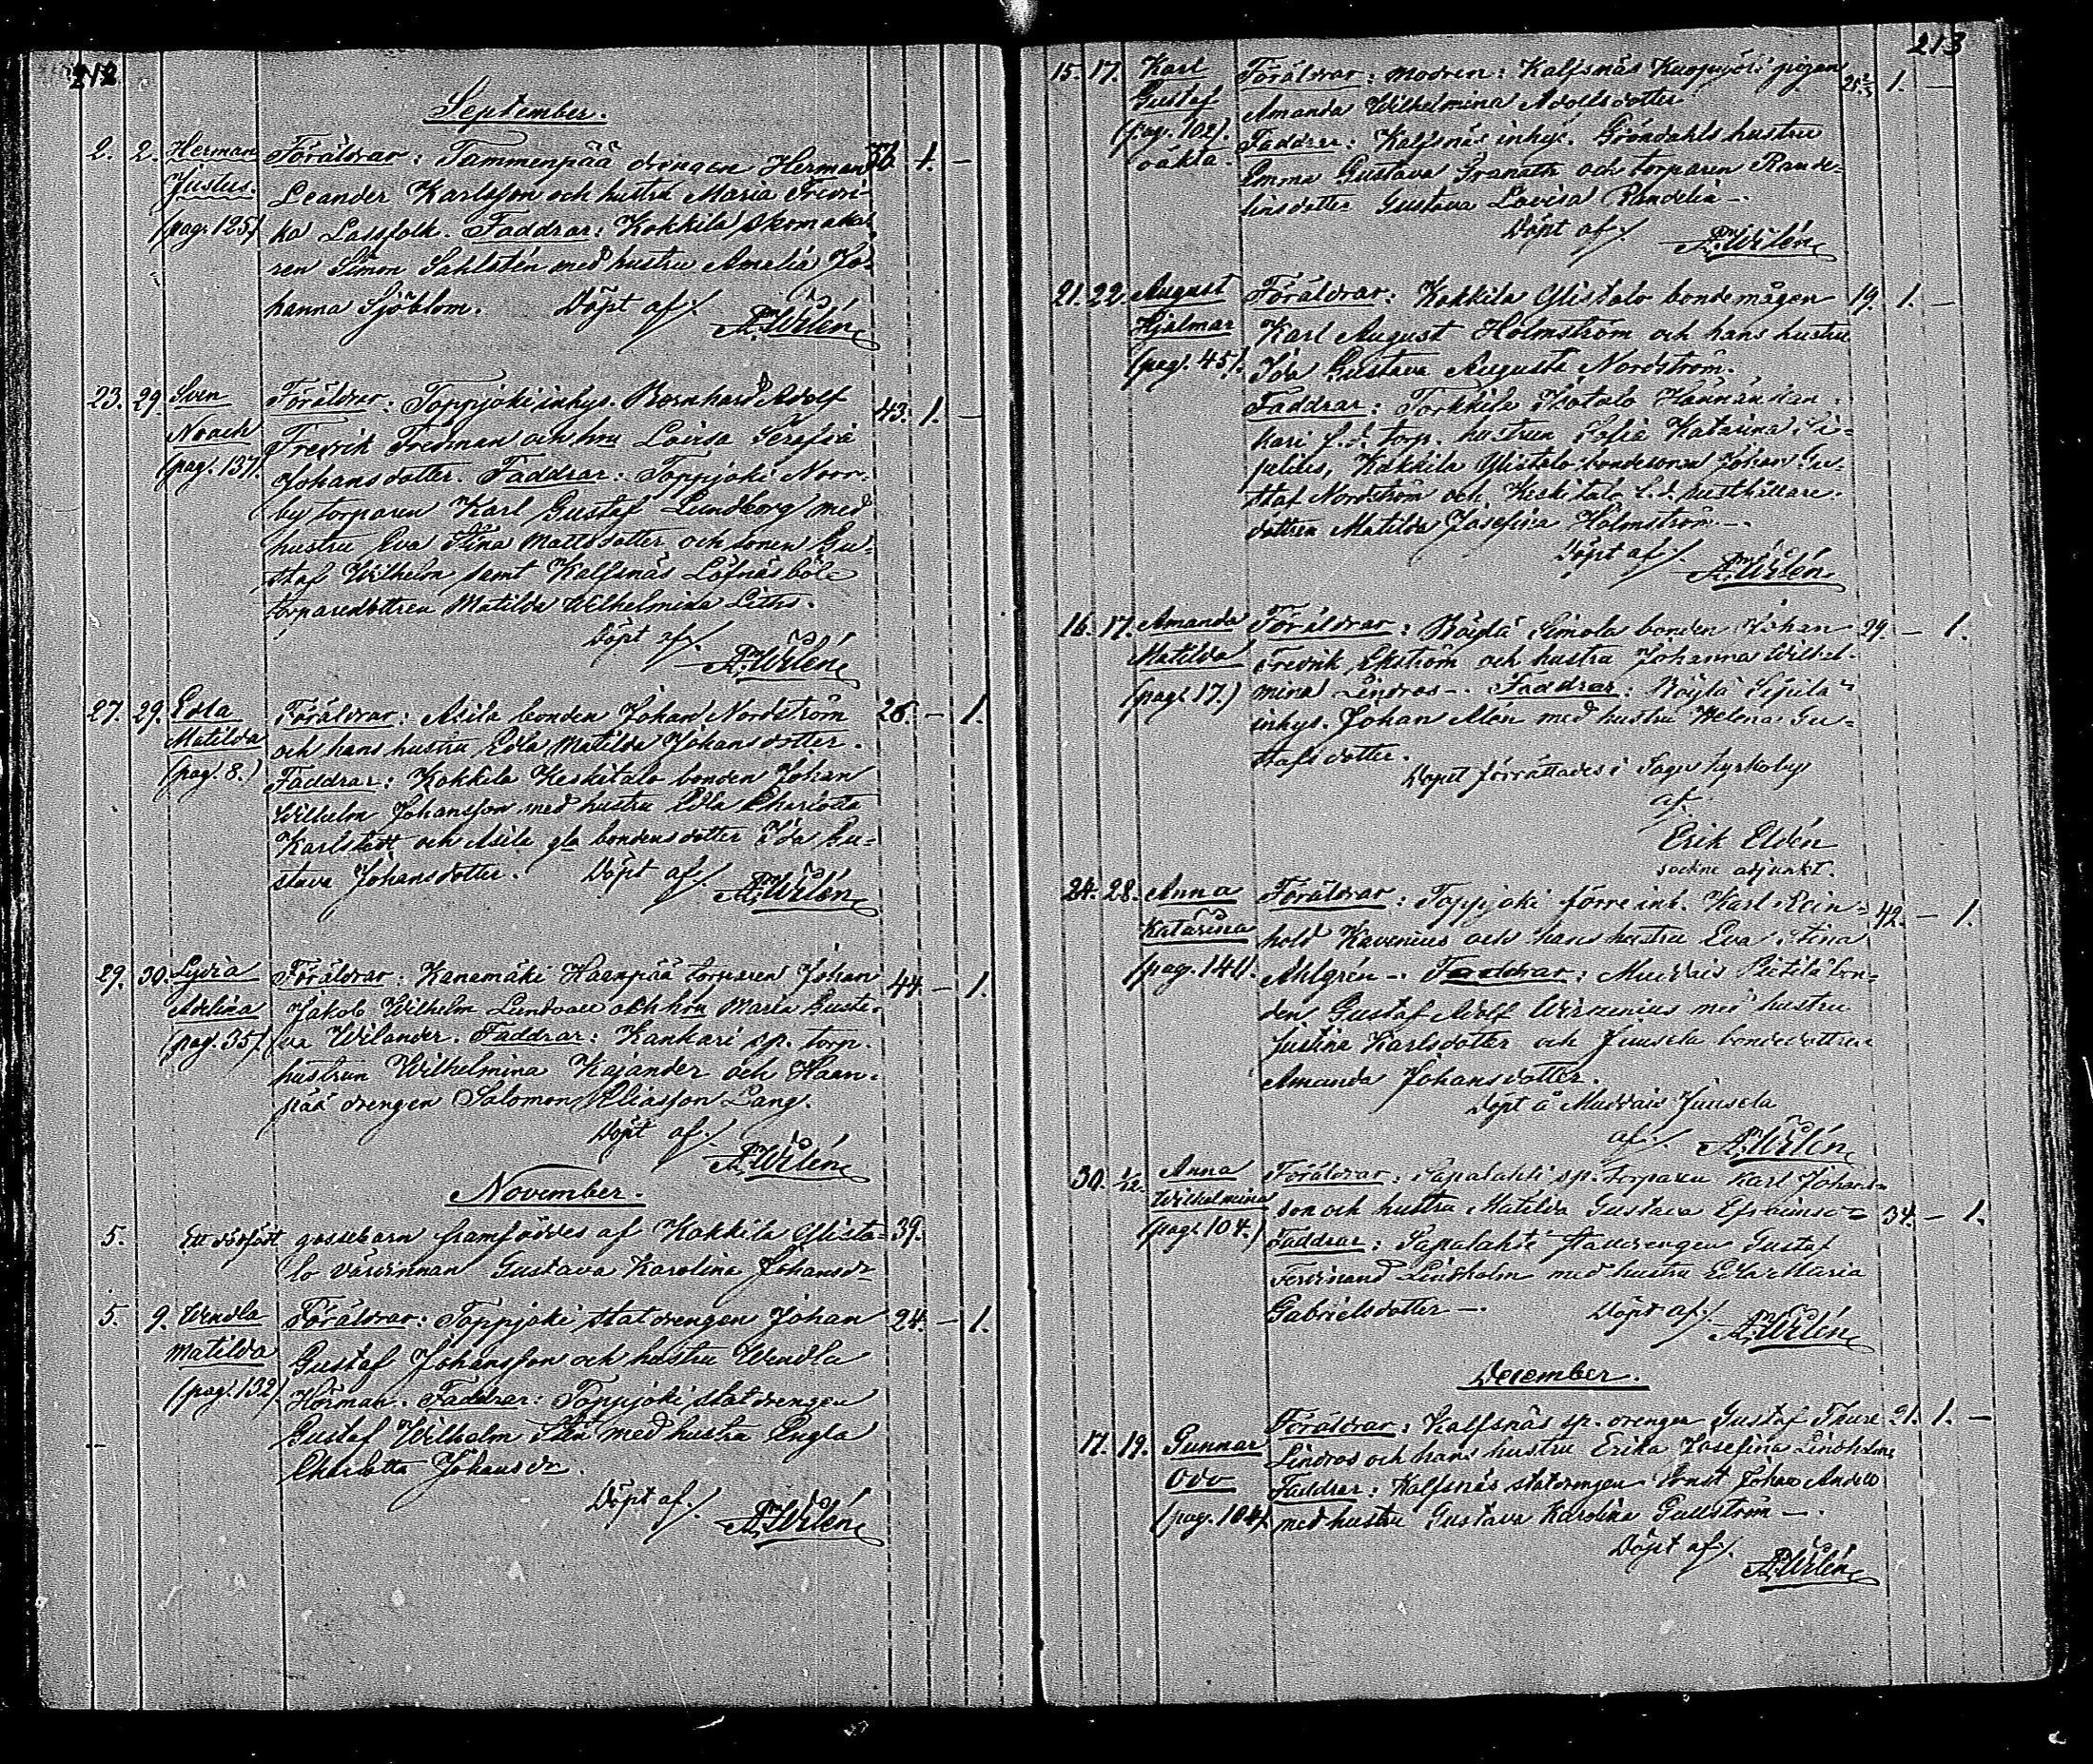 212
September.
2. 2. Herman Justus. (pag. 125)
Föräldrar: Tammenpää drengen Herman 36. 1. —
Leander Karlsson och hustru Maria Fredri-
ka Lassfolk. Faddrar: Kokkila Skomaka-
ren Simon Sahlstén med hustru Amalia Jo-
hanna Sjöblom. Döpt af/. A. Wilén
23. 29. Sven Noach (pag. 137).
Föräldrar: Toppjoki inhys. Bernhard Adolf 43. 1. —
Fredrik Fredman och hru Lovisa Serafia
Johansdotter. Faddrar: Toppjoki Norr-
by torparen Karl Gustaf Lundborg med
hustru Eva Stina Mattsdotter och sonen Gu-
staf Wilhelm samt Kalfsnäs Löfnäsböle
torparedottren Matilda Wilhelmina Liths.
Döpt af/. A. Wilén
27. 29. Edla Matilda (pag. 8.)
Föräldrar: Asila bonden Johan Nordström 26. — 1.
och hans hustru Edla Matilda Johansdotter.
Faddrar: Kokkila Keskitalo bonden Johan
Wilhelm Johansson med hustru Edla Charlotta
Karlstedt och Asila gla bondens dotter Ida Gu-
stava Johansdotter. Döpt af/. A. Wilén
29. 30. Lydia Adelina (pag. 35)
Föräldrar: Kanamäki Haanpää torparen Johan 44. — 1.
Jakob Wilhelm Lundvall och hru Maria Gusta-
va Wilander. Faddrar: Kankari sp. torp.
hustrun Wilhelmina Kajander och Haan-
pää drengen Salomon Eliasson Lang.
Döpt af/. A. Wilén
November.
5. Ett dödfödt gossebarn framföddes af Kokkila Ylista- 39.
lo värdinnan Gustava Karolina Johansdr
5. 9. Wendla Matilda (pag. 132)
Föräldrar: Toppjoki statdrengen Johan 24. — 1.
Gustaf Johansson och hustru Wendla
Hörman. Faddrar: Toppjoki statdrengen
Gustaf Wilhelm Sten med hustru Engla
Charlotta Johansdr.
Döpt af/. A. Wilén
213
15. 17. Karl Gustaf (pag. 102). oäkta.
Föräldrar: modren: Kalfsnäs pigan 25 1. —
Amanda Wilhelmina Adolfsdotter
Faddrar: Kalfsnäs inhys. Gröndahls hustru
Emma Gustava Granath och torparen Rande-
lins dotter Gustava Lovisa Randelin —.
Döpt af/. A. Wilén
21. 22. August Hjalmar (pag. 45).
Föräldrar: Kokkila Ylistalo bondemågen 19. 1. —
Karl August Holmström och hans hustru
Ida Gustava Augusta Nordström.
Faddrar: Torkkila
kari f.d. torp. hustrun Sofia Katarina Si-
pelius, Kokkila Ylistalo bondesonen Johan Gu-
staf Nordström och Keskitalo f.d. husthållare-
dottren Matilda Josefina Holmström —.
Döpt af/. A. Wilén
16. 17. Amanda Matilda (pag. 17.)
Föräldrar: Röylä Simola bonden Johan 29. — 1.
Fredrik Ekström och hustru Johanna Wilhel-
mina Lindros —. Faddrar: Röylä
inhys. Johan Alén med hustru Helena Gu-
stafsdotter.
Dopet förrättades i Sagu kyrkoby
af.
Erik Eldén
sockne adjunkt.
24. 28. Anna Katarina (pag. 140).
Föräldrar: Toppjoki förre inh. Karl Rein- 42. — 1.
hold Kavenius och hans hustru Eva Stina
Ahlgrén —. Faddrar: Muddais Pietilä bon-
den Gustaf Adolf Wirzenius med hustru
Justina Karlsdotter och Juusela bondedottren
Amanda Johansdotter.
Döpt å Muddais Juusela
af/. A. Wilén
30. 1/12. Anna Wilhelmina (pag. 104.)
Föräldrar: Sapalahti sp. torparen Karl Johans-
son och hustru Matilda Gustava Efraimsdr 34. — 1.
Faddrar: Sapalahti stalldrengen Gustaf
Ferdinand Lindholm med hustru Edla Maria
Gabrielsdotter —. Döpt af/. A. Wilén
December.
17. 19. Gunnar Odo (pag. 104).
Föräldrar: Kalfsnäs sp. drengen Gustaf Thure 21. 1. —
Lindros och hans hustru Erika Josefina Lindholm
Faddrar: Kalfsnäs statdrengen Ernst Johan
med hustru Gustava Karolina Gullström —.
Döpt af/. A. Wilén